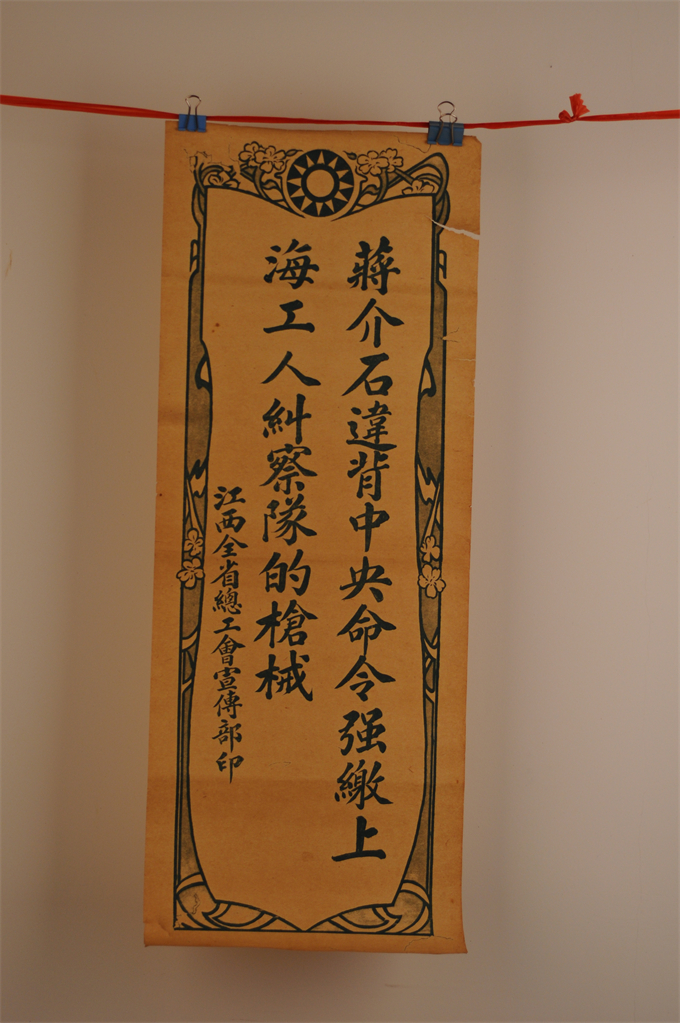 蔣介石違背中央命令强繳上
海工人糾察隊的槍械
江西全省總工會宣傳部印